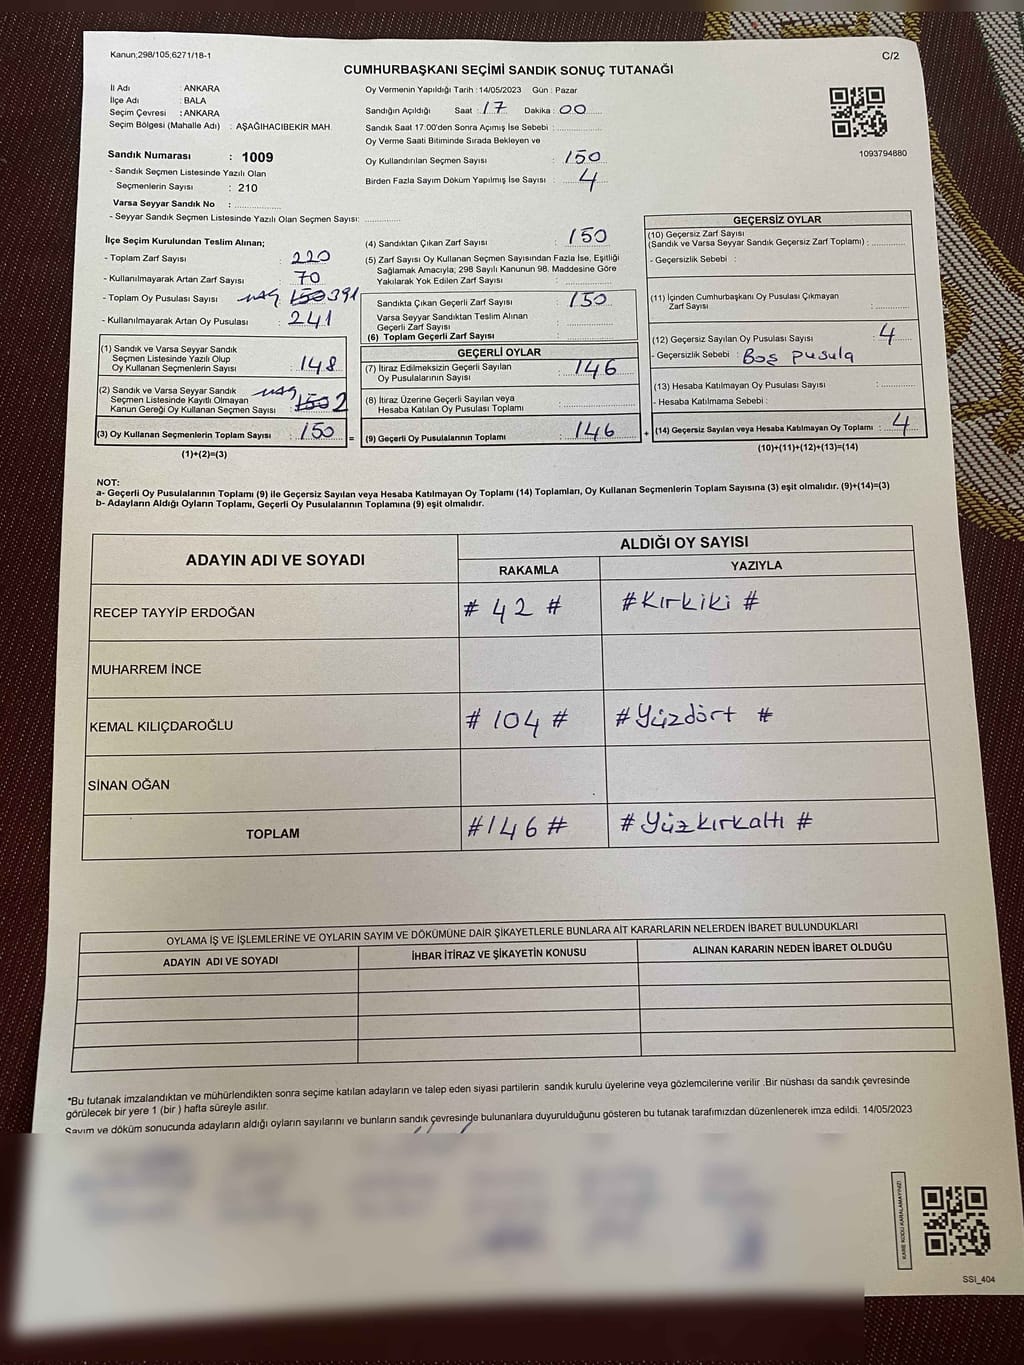 Kanun;298/105,6271/18-1
C/2
CUMHURBAŞKANI SEÇİMİ SANDIK SONUÇ TUTANAĞI
İl Adı : ANKARA
İlçe Adı : BALA
Seçim Çevresi : ANKARA
Seçim Bölgesi (Mahalle Adı) : AŞAĞIHACIBEKİR MAH.
Sandık Numarası : 1009
- Sandık Seçmen Listesinde Yazılı Olan
Seçmenlerin Sayısı : 210
Varsa Seyyar Sandık No :
- Seyyar Sandık Seçmen Listesinde Yazılı Olan Seçmen Sayısı:
Oy Vermenin Yapıldığı Tarih : 14/05/2023 Gün : Pazar
Sandığın Açıldığı Saat : 17 Dakika : 00
Sandık Saat 17:00'den Sonra Açımış İse Sebebi :
Oy Verme Saati Bitiminde Sırada Bekleyen ve
Oy Kullandırılan Seçmen Sayısı : 150
Birden Fazla Sayım Döküm Yapılmış İse Sayısı : 4
1093794880
İlçe Seçim Kurulundan Teslim Alınan;
- Toplam Zarf Sayısı : 220
- Kullanılmayarak Artan Zarf Sayısı : 70
- Toplam Oy Pusulası Sayısı : 150 391
- Kullanılmayarak Artan Oy Pusulası : 241
(1) Sandık ve Varsa Seyyar Sandık
Seçmen Listesinde Yazılı Olup
Oy Kullanan Seçmenlerin Sayısı : 148
(2) Sandık ve Varsa Seyyar Sandık
Seçmen Listesinde Kayıtlı Olmayan
Kanun Gereği Oy Kullanan Seçmen Sayısı : 150 2
(3) Oy Kullanan Seçmenlerin Toplam Sayısı : 150 =
(1)+(2)=(3)
(4) Sandıktan Çıkan Zarf Sayısı : 150
(5) Zarf Sayısı Oy Kullanan Seçmen Sayısından Fazla İse, Eşitliği
Sağlamak Amacıyla; 298 Sayılı Kanunun 98. Maddesine Göre
Yakılarak Yok Edilen Zarf Sayısı :
Sandıkta Çıkan Geçerli Zarf Sayısı : 150
Varsa Seyyar Sandıktan Teslim Alınan
Geçerli Zarf Sayısı :
(6) Toplam Geçerli Zarf Sayısı :
GEÇERLİ OYLAR
(7) İtiraz Edilmeksizin Geçerli Sayılan
Oy Pusulalarının Sayısı : 146
(8) İtiraz Üzerine Geçerli Sayılan veya
Hesaba Katılan Oy Pusulası Toplamı :
(9) Geçerli Oy Pusulalarının Toplamı : 146 +
GEÇERSİZ OYLAR
(10) Geçersiz Zarf Sayısı
(Sandık ve Varsa Seyyar Sandık Geçersiz Zarf Toplamı) :
- Geçersizlik Sebebi :
(11) İçinden Cumhurbaşkanı Oy Pusulası Çıkmayan
Zarf Sayısı :
(12) Geçersiz Sayılan Oy Pusulası Sayısı : 4
- Geçersizlik Sebebi : Boş pusula
(13) Hesaba Katılmayan Oy Pusulası Sayısı :
- Hesaba Katılmama Sebebi :
(14) Geçersiz Sayılan veya Hesaba Katılmayan Oy Toplamı : 4
(10)+(11)+(12)+(13)=(14)
NOT:
a- Geçerli Oy Pusulalarının Toplamı (9) ile Geçersiz Sayılan veya Hesaba Katılmayan Oy Toplamı (14) Toplamları, Oy Kullanan Seçmenlerin Toplam Sayısına (3) eşit olmalıdır. (9)+(14)=(3)
b- Adayların Aldığı Oyların Toplamı, Geçerli Oy Pusulalarının Toplamına (9) eşit olmalıdır.
ADAYIN ADI VE SOYADI
ALDIĞI OY SAYISI
RAKAMLA YAZIYLA
RECEP TAYYİP ERDOĞAN # 42 # #Kırkiki #
MUHARREM İNCE
KEMAL KILIÇDAROĞLU # 104 # #Yüzdört #
SİNAN OĞAN
TOPLAM #146# #Yüzkırkaltı #
OYLAMA İŞ VE İŞLEMLERİNE VE OYLARIN SAYIM VE DÖKÜMÜNE DAİR ŞİKAYETLERLE BUNLARA AİT KARARLARIN NELERDEN İBARET BULUNDUKLARI
ADAYIN ADI VE SOYADI İHBAR İTİRAZ VE ŞİKAYETİN KONUSU ALINAN KARARIN NEDEN İBARET OLDUĞU
*Bu tutanak imzalandıktan ve mühürlendikten sonra seçime katılan adayların ve talep eden siyasi partilerin sandık kurulu üyelerine veya gözlemcilerine verilir .Bir nüshası da sandık çevresinde
görülecek bir yere 1 (bir ) hafta süreyle asılır.
Sayım ve döküm sonucunda adayların aldığı oyların sayılarını ve bunların sandık çevresinde bulunanlara duyurulduğunu gösteren bu tutanak tarafımızdan düzenlenerek imza edildi. 14/05/2023
KARE KODU KARALAMAYINIZ!
SSI_404